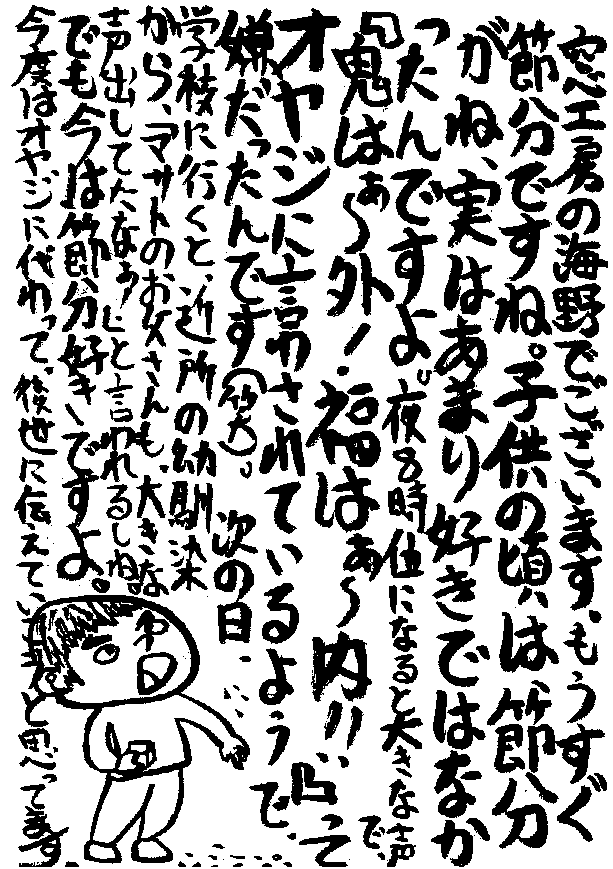 窓工房の海野でございます。もうすぐ
節分ですね。子供の頃は、節分
がね、実はあまり好きではなか
ったんですよ。夜8時位になると大きな声で、
『鬼はぁ〜外!福はぁ〜内!!』って
オヤジに言わされているようで、
嫌だったんです(笑)。次の日、
学校に行くと、近所の幼馴染
から、「マサトのお父さんも、大きな
声出してんなぁ」と言われるしね。
でも今は節分好きですよ。
今度はオヤジに代わって、後世に伝えていこうと思ってます。